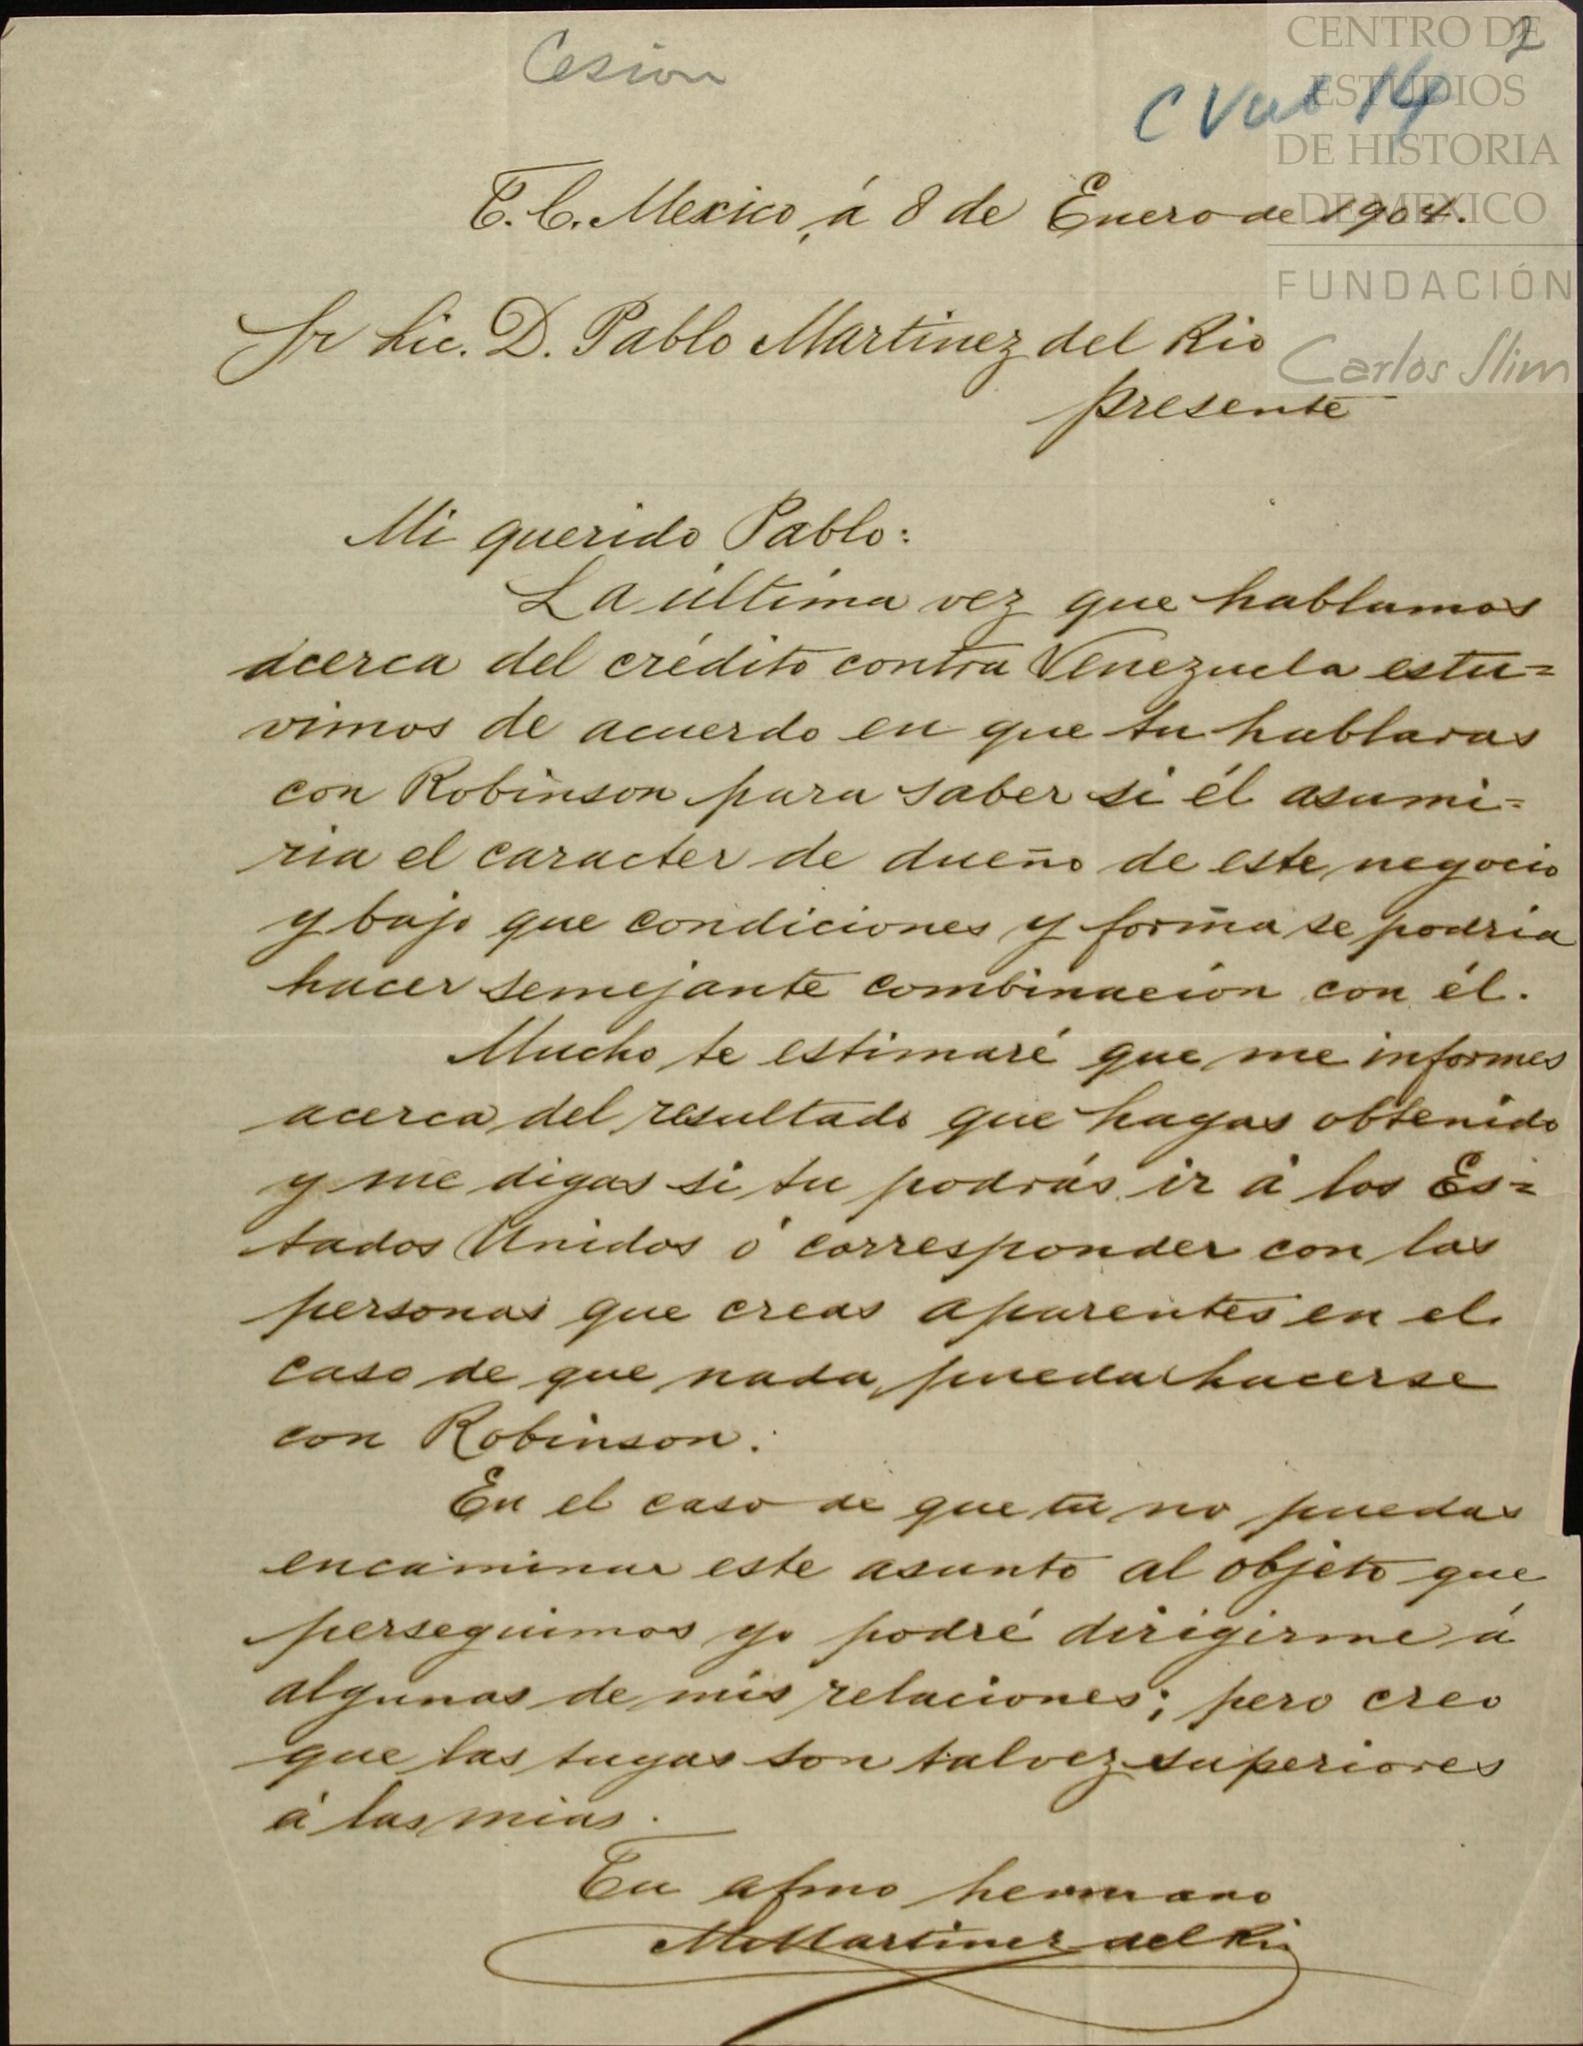 Cesion
2
C Vul 14
CENTRO DE
ESTUDIOS
DE HISTORIA
DE MEXICO
FUNDACIÓN
Carlos Slim
T. C. Mexico, á 8 de Enero de 1904.
Sr Lic. D. Pablo Martinez del Rio
presente
Mi querido Pablo:
La última vez que hablamos
acerca del crédito contra Venezuela estu=
vimos de acuerdo en que tu hablaras
con Robinson para saber si él asumi=
ria el caracter de dueño de este negocio
y bajo que condiciones y forma se podria
hacer semejante combinacion con él.
Mucho te estimaré que me informes
acerca del resultado que hayas obtenido
y me digas si tu podrás ir á los Es=
tados Unidos ó corresponder con las
personas que creas aparentes en el
caso de que nada pueda hacerse
con Robinson.
En el caso de que tú no puedas
encaminar este asunto al objeto que
perseguimos yo podré dirigirme á
algunas de mis relaciones; pero creo
que las tuyas son talvez superiores
á las mias.
Tu afmo hermano
M Martinez del Rio